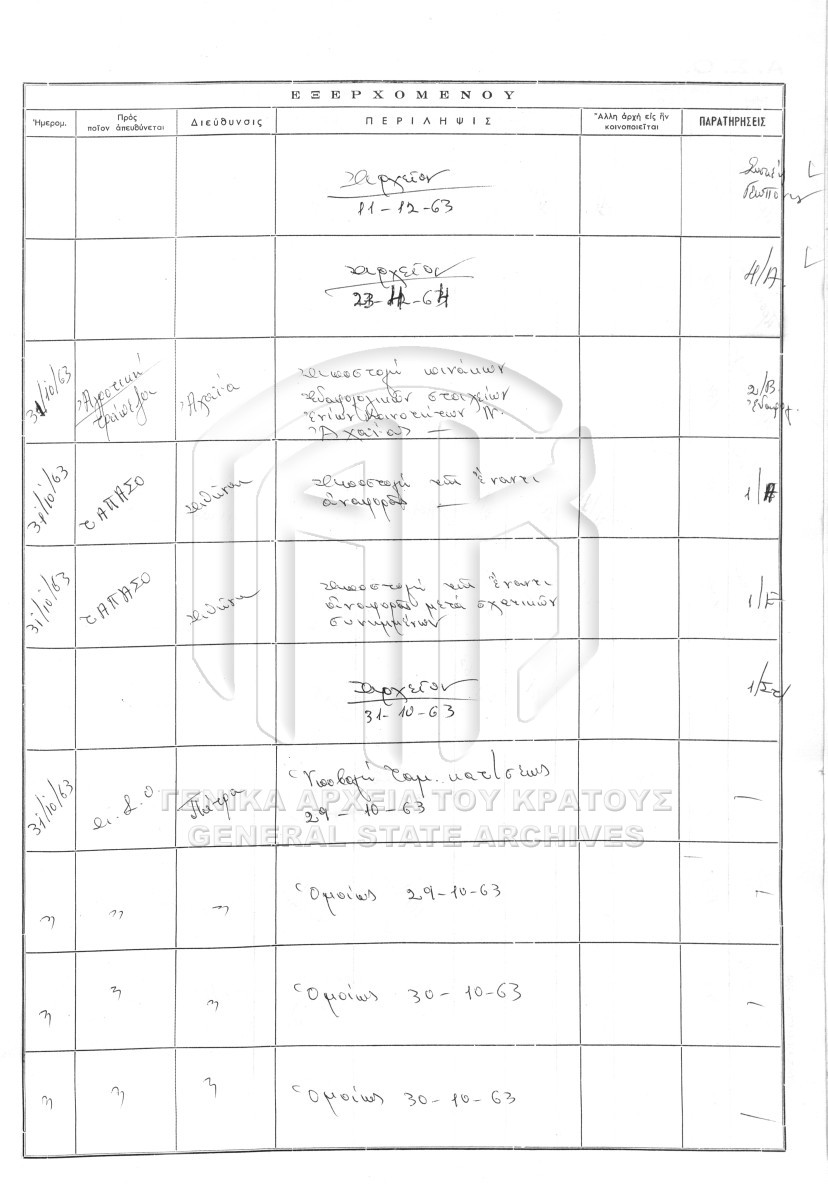 ΕΞΕΡΧΟΜΕΝΟΥ
Ἡμερομ.
Πρὸς
ποῖον ἀπευθύνεται
Διεύθυνσις
ΠΕΡΙΛΗΨΙΣ
Ἄλλη ἀρχὴ εἰς ἣν
κοινοποιεῖται
ΠΑΡΑΤΗΡΗΣΕΙΣ
Ἀρχεῖον
11-12-63
Ἀρχεῖον
4/Α
31/10/63
Ἀγροτική
Τράπεζα
Ἀχαΐα
Ἀποστολή πινάκων
ἐδαφολογικῶν στοιχείων
ἐνίων Κοινοτήτων Ν.
Ἀχαΐας —
2/Β
31/10/63
ΥΑΠΑΣΟ
Ἀθῆναι
Ἀποστολή ἔναντι
ἀναφορᾶς —
1/
31/10/63
ΥΑΠΑΣΟ
Ἀθῆναι
Ἀποστολή ἔναντι
ἀναφορᾶς μετά σχετικῶν
συνημμένων
1/Ε
Ἀρχεῖον
31-10-63
1/Στ
31/10/63
Πάτρα
Ὑποβολή
29-10-63
—
〃 〃 〃 Ὁμοίως 29-10-63 —
〃 〃 〃 Ὁμοίως 30-10-63 —
〃 〃 〃 Ὁμοίως 30-10-63 —
ΓΕΝΙΚΑ ΑΡΧΕΙΑ ΤΟΥ ΚΡΑΤΟΥΣ
GENERAL STATE ARCHIVES